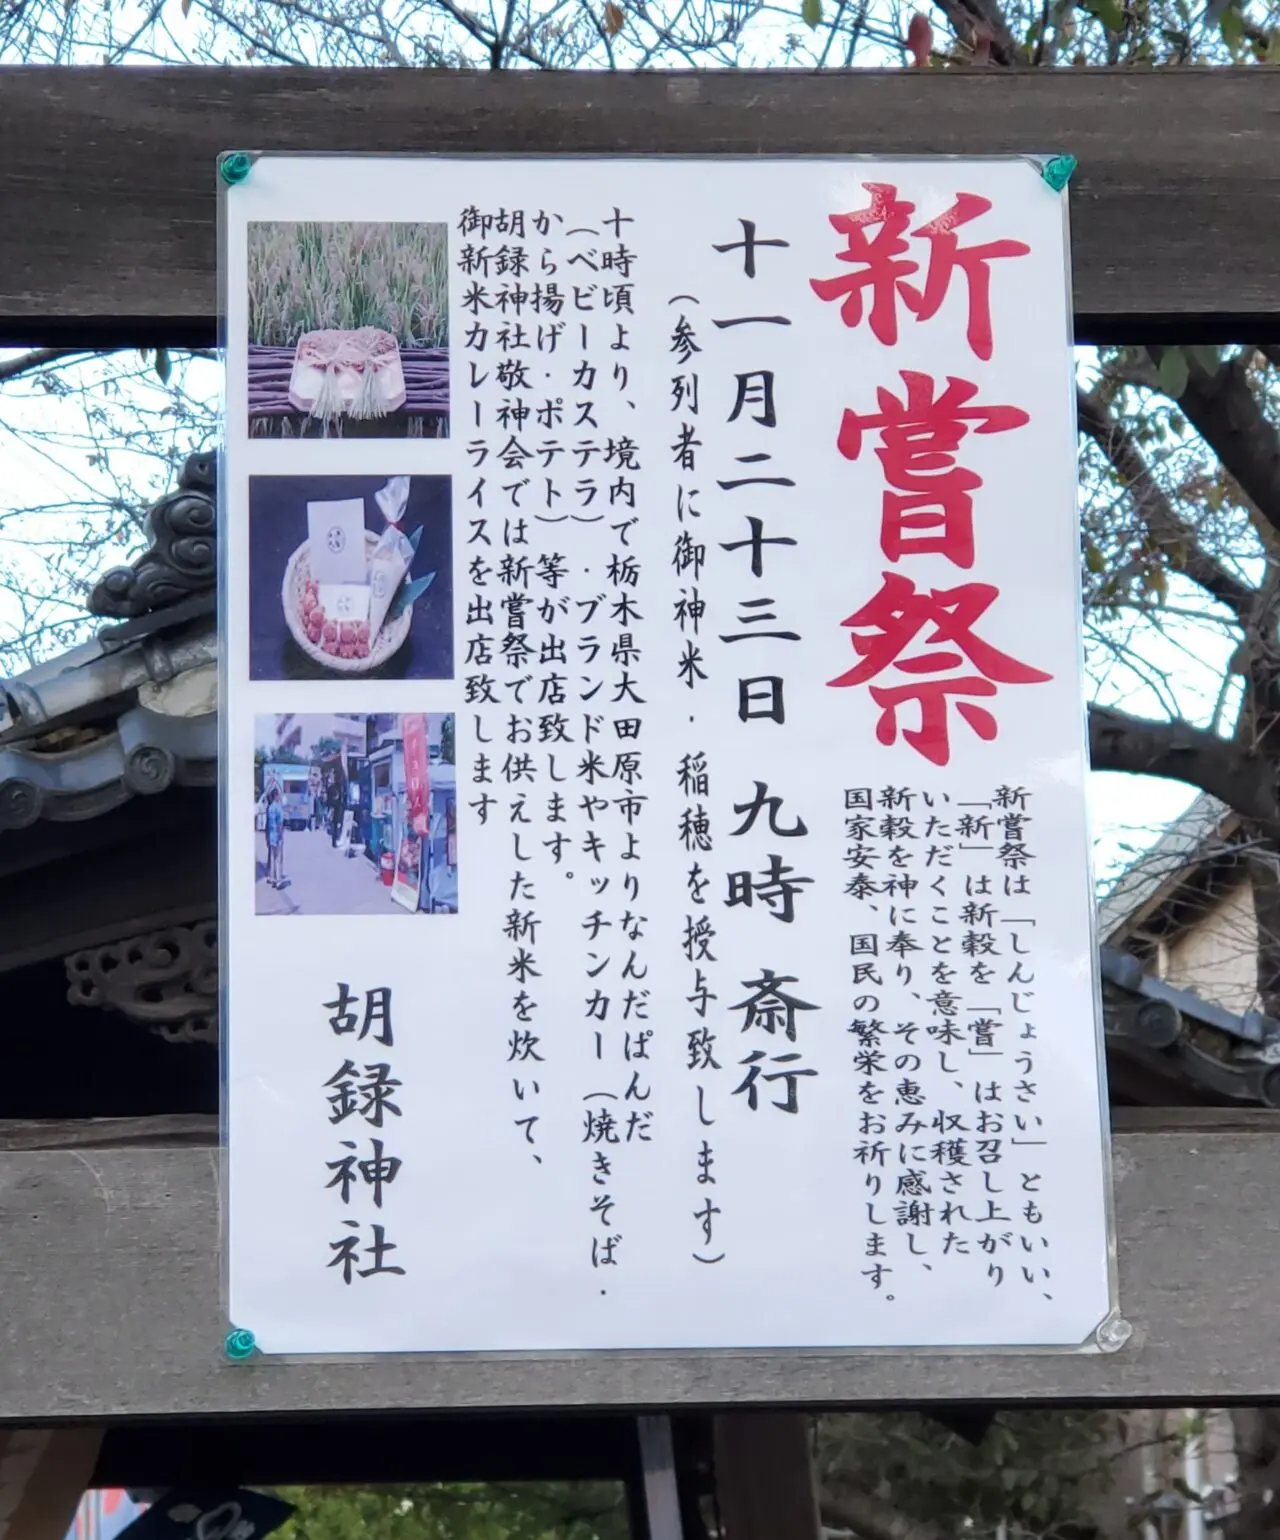 新嘗祭
新嘗祭は「しんじょうさい」ともいい、
「新」は新穀を「嘗」はお召し上がり
いただくことを意味し、収穫された
新穀を神に奉り、その恵みに感謝し、
国家安泰、国民の繁栄をお祈りします。
十一月二十三日 九時 斎行
（参列者に御神米・稲穂を授与致します）
十時頃より、境内で栃木県大田原市よりなんだぱんだ
（ベビーカステラ）・ブランド米やキッチンカー（焼きそば・
から揚げ・ポテト）等が出店致します。
胡録神社敬神会では新嘗祭でお供えした新米を炊いて、
御新米カレーライスを出店致します
胡録神社